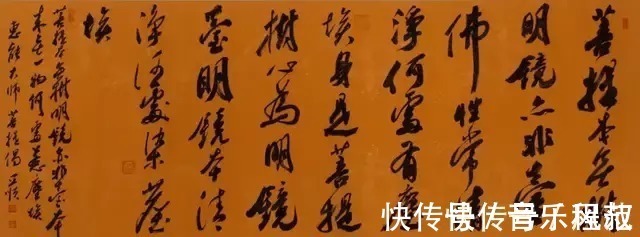 菩提本無樹
明鏡亦非臺
佛性常清
淨何處有塵
埃身是菩提
樹心為明鏡
臺明鏡本清
淨何處染塵
埃
菩提本無樹明鏡亦非臺本
來無一物何處惹塵埃
惠能大師菩提偈
快传号